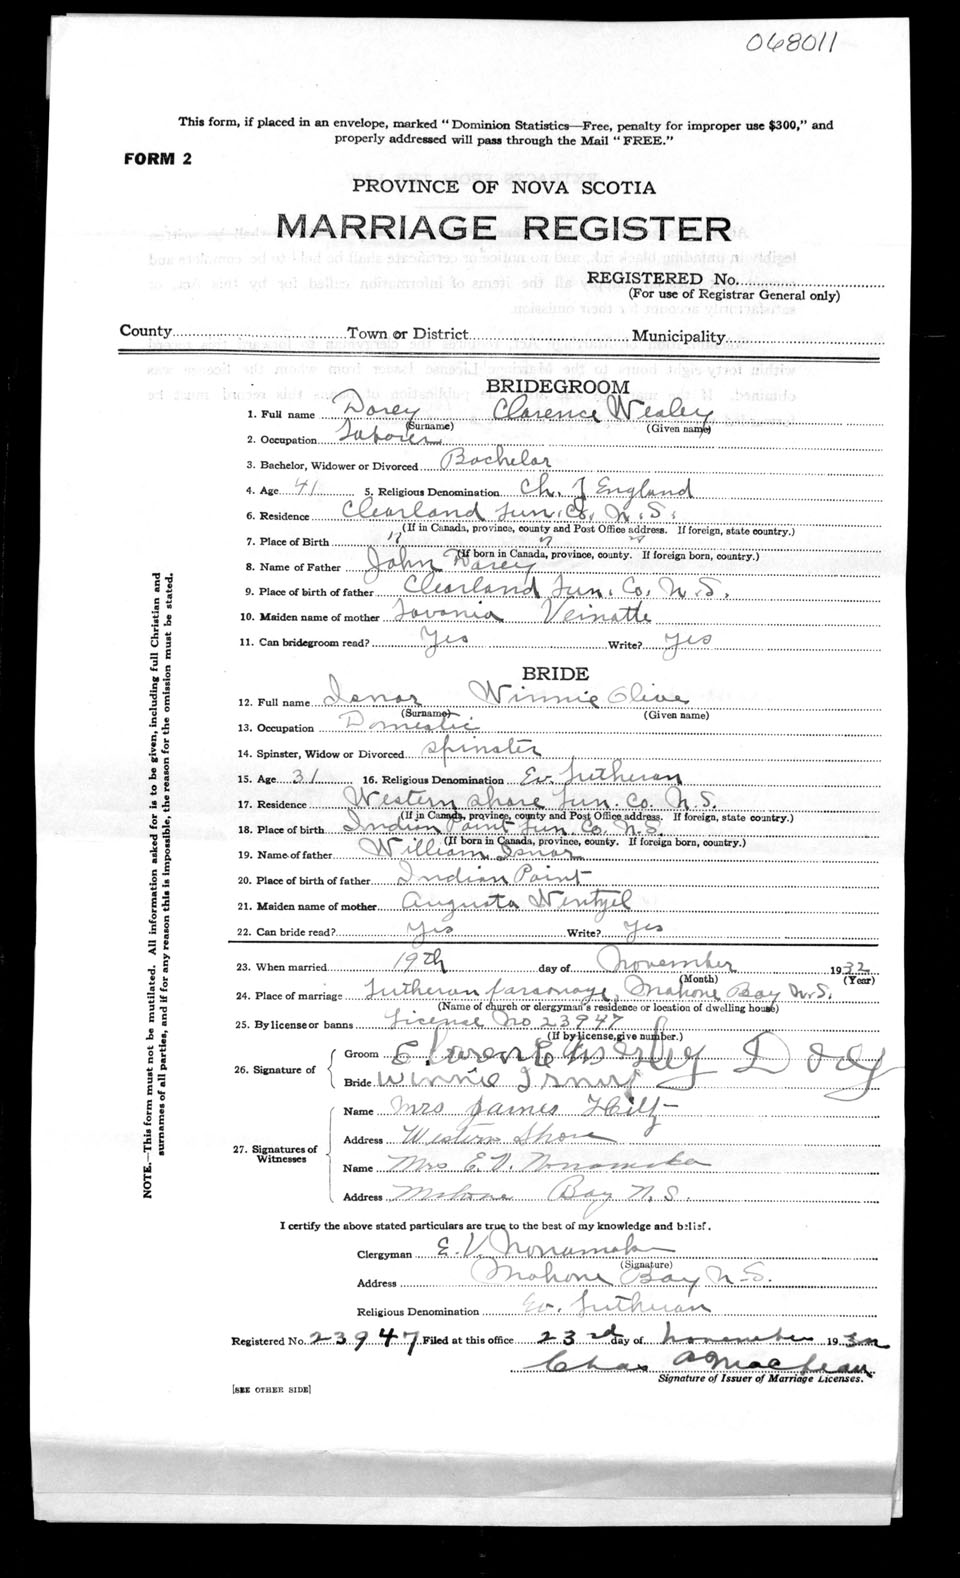 068011
This form, if placed in an envelope, marked "Dominion Statistics—Free, penalty for improper use $300," and
properly addressed will pass through the Mail "FREE."
FORM 2
PROVINCE OF NOVA SCOTIA
MARRIAGE REGISTER
REGISTERED No.
(For use of Registrar General only)
County Town or District Municipality
BRIDEGROOM
1. Full name Dorey Clarence Wesley
(Surname) (Given name)
2. Occupation Laborer
3. Bachelor, Widower or Divorced Bachelor
4. Age 41 5. Religious Denomination Ch. of England
6. Residence Clearland Lun. Co. N.S.
(If in Canada, province, county and Post Office address. If foreign, state country.)
7. Place of Birth " " "
(If born in Canada, province, county. If foreign born, country.)
8. Name of Father John Dorey
9. Place of birth of father Clearland Lun. Co. N.S.
10. Maiden name of mother Lavania Veinotte
11. Can bridegroom read? Yes Write? Yes
BRIDE
12. Full name Isnor Winnie Olive
(Surname) (Given name)
13. Occupation Domestic
14. Spinster, Widow or Divorced Spinster
15. Age 31 16. Religious Denomination Ev. Lutheran
17. Residence Western Shore Lun. Co. N.S.
(If in Canada, province, county and Post Office address. If foreign, state country.)
18. Place of birth Indian Point Lun. Co. N.S.
(If born in Canada, province, county. If foreign born, country.)
19. Name of father William Isnor
20. Place of birth of father Indian Point
21. Maiden name of mother Augusta Wentzel
22. Can bride read? Yes Write? Yes
23. When married 19th day of November 1932
(Month) (Year)
24. Place of marriage Lutheran Parsonage, Mahone Bay N.S.
(Name of church or clergyman's residence or location of dwelling house)
25. By license or banns License No 23947
(If by license, give number.)
26. Signature of
Groom Clarence Wesley Dorey
Bride Winnie Isnor
27. Signatures of Witnesses
Name Mrs James Hiltz
Address Western Shore
Name Mrs E.V. Nonamaker
Address Mahone Bay N.S.
I certify the above stated particulars are true to the best of my knowledge and belief.
Clergyman E.V. Nonamaker
(Signature)
Address Mahone Bay N.S.
Religious Denomination Ev. Lutheran
Registered No. 23947 Filed at this office 23rd day of November 1932
Chas A MacLean
Signature of Issuer of Marriage Licenses.
[SEE OTHER SIDE]
NOTE.—This form must not be mutilated. All information asked for is to be given, including full Christian and
surnames of all parties, and if for any reason this is impossible, the reason for the omission must be stated.